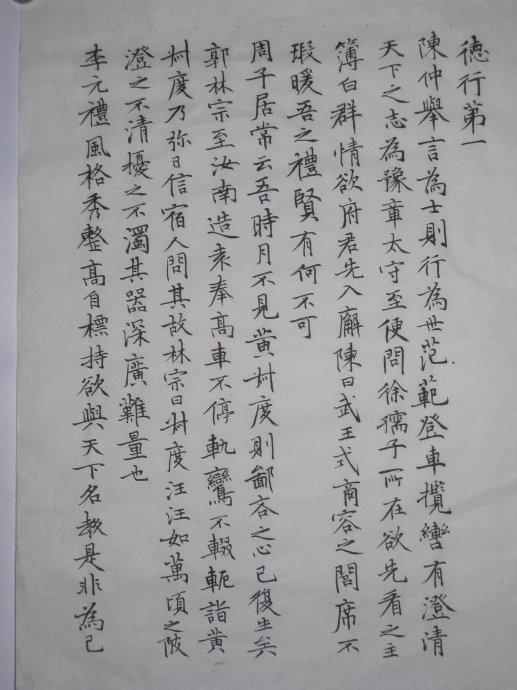 德行第一
陳仲舉言為士則行為世范範登車攬轡有澄清
天下之志為豫章太守至便問徐孺子所在欲先看之主
簿白群情欲府君先入廨陳曰武王式商容之閭席不
瑕暖吾之禮賢有何不可
周子居常云吾時月不見黃叔度則鄙吝之心已復生矣
郭林宗至汝南造袁奉高車不停軌鸞不輟軛詣黃
叔度乃弥日信宿人問其故林宗曰叔度汪汪如萬頃之陂
澄之不清擾之不濁其器深廣難量也
李元禮風格秀整高自標持欲與天下名教是非為己